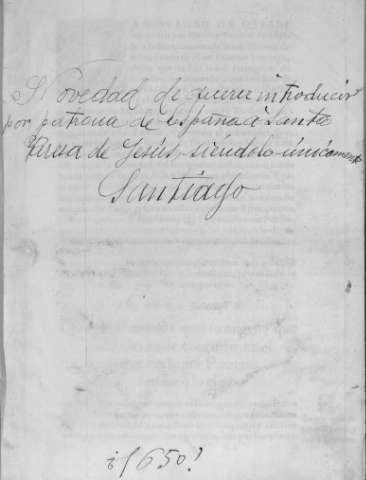 Novedad de querer introducir
por patrona de España á Santa
Teresa de Jesús, siéndolo únicamente
Santiago
¿1650?